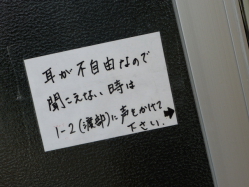 耳が不自由なので
聞こえない時は
1-2(渡部)に声をかけて
下さい.➡